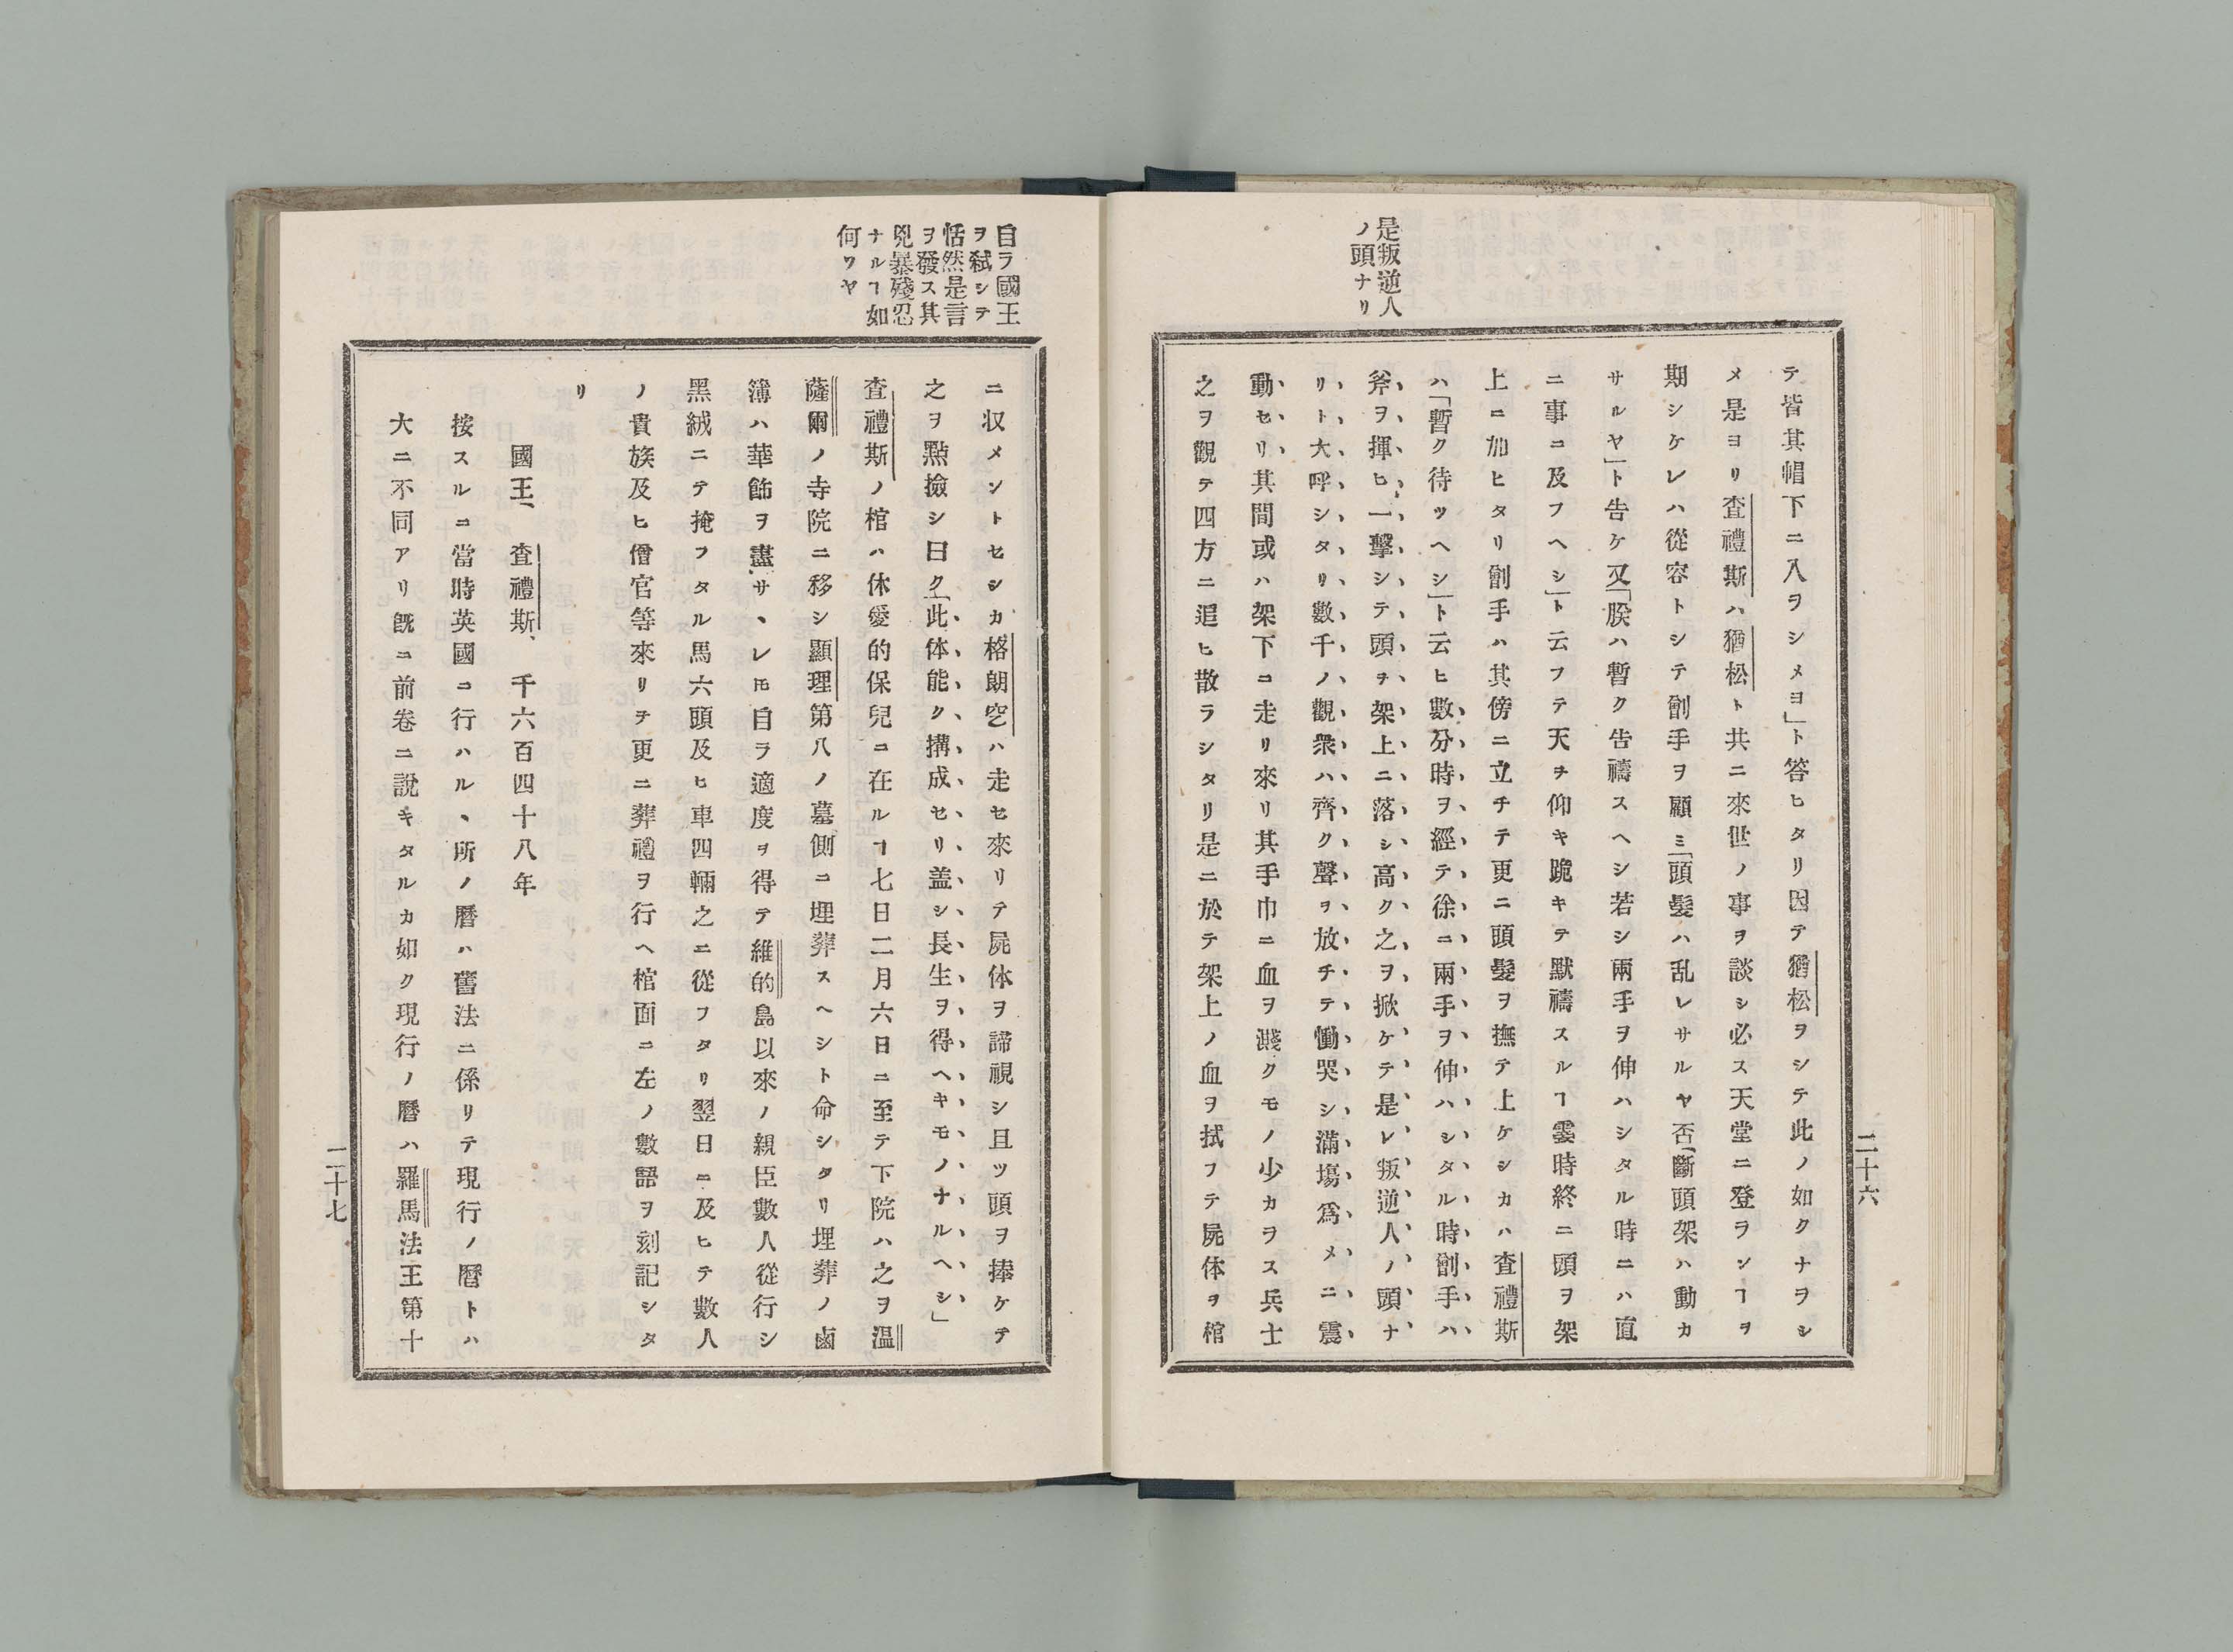 是叛逆人
ノ頭ナリ
テ皆其帽下ニ入ヲシメヨ」ト答ヒタリ因テ猶松ヲシテ此ノ如クナヲシ
メ是ヨリ査禮斯ハ猶松ト共ニ來世ノ事ヲ談シ必ス天堂ニ登ランヿヲ
期シケレハ從容トシテ劊手ヲ顧ミ「頭髮ハ乱レサルヤ否「斷頭架ハ動カ
サルヤ」ト告ケ又「朕ハ暫ク告禱スヘシ若シ兩手ヲ伸ハシタル時ニハ直
ニ事ニ及フヘシ」ト云フテ天ヲ仰キ跪キテ默禱スルヿ霎時終ニ頭ヲ架
上ニ加ヒタリ劊手ハ其傍ニ立チテ更ニ頭髮ヲ撫テ上ケシカハ査禮斯
ハ「暫ク待ツヘシ」ト云ヒ數分時ヲ經テ徐ニ兩手ヲ伸ハシタル時劊手ハ
斧ヲ揮ヒ一擊シテ頭ヲ架上ニ落シ高ク之ヲ掀ケテ是レ叛逆人ノ頭ナ
リト大呼シタリ數千ノ觀衆ハ齊ク聲ヲ放チテ慟哭シ滿塲爲メニ震
動セリ其間或ハ架下ニ走リ來リ其手巾ニ血ヲ濺クモノ少カヲス兵士
之ヲ觀テ四方ニ追ヒ散ラシタリ是ニ於テ架上ノ血ヲ拭フテ屍体ヲ棺
二十六
自ラ國王
ヲ弑シテ
恬然是言
ヲ發ス其
兇暴殘忍
ナルヿ如
何ワヤ
ニ収メントセシカ格朗空ハ走セ來リテ屍体ヲ諦視シ且ツ頭ヲ捧ケテ
之ヲ點撿シ曰ク「此体能ク搆成セリ盖シ長生ヲ得ヘキモノナルヘシ」
査禮斯ノ棺ハ休愛的保兒ニ在ルヿ七日二月六日ニ至テ下院ハ之ヲ溫
薩爾ノ寺院ニ移シ顯理第八ノ墓側ニ埋葬スヘシト命シタリ埋葬ノ鹵
簿ハ華飾ヲ盡サヽレ𪜈自ラ適度ヲ得テ維的島以來ノ親臣數人從行シ
黑絨ニテ掩フタル馬六頭及ヒ車四輛之ニ從フタリ翌日ニ及ヒテ數人
ノ貴族及ヒ僧官等來リテ更ニ葬禮ヲ行ヘ棺面ニ左ノ數語ヲ刻記シタ
リ
國王、査禮斯、千六百四十八年
按スルニ當時英國ニ行ハルヽ所ノ曆ハ舊法ニ係リテ現行ノ曆トハ
大ニ不同アリ既ニ前卷ニ說キタルカ如ク現行ノ曆ハ羅馬法王第十
二十七